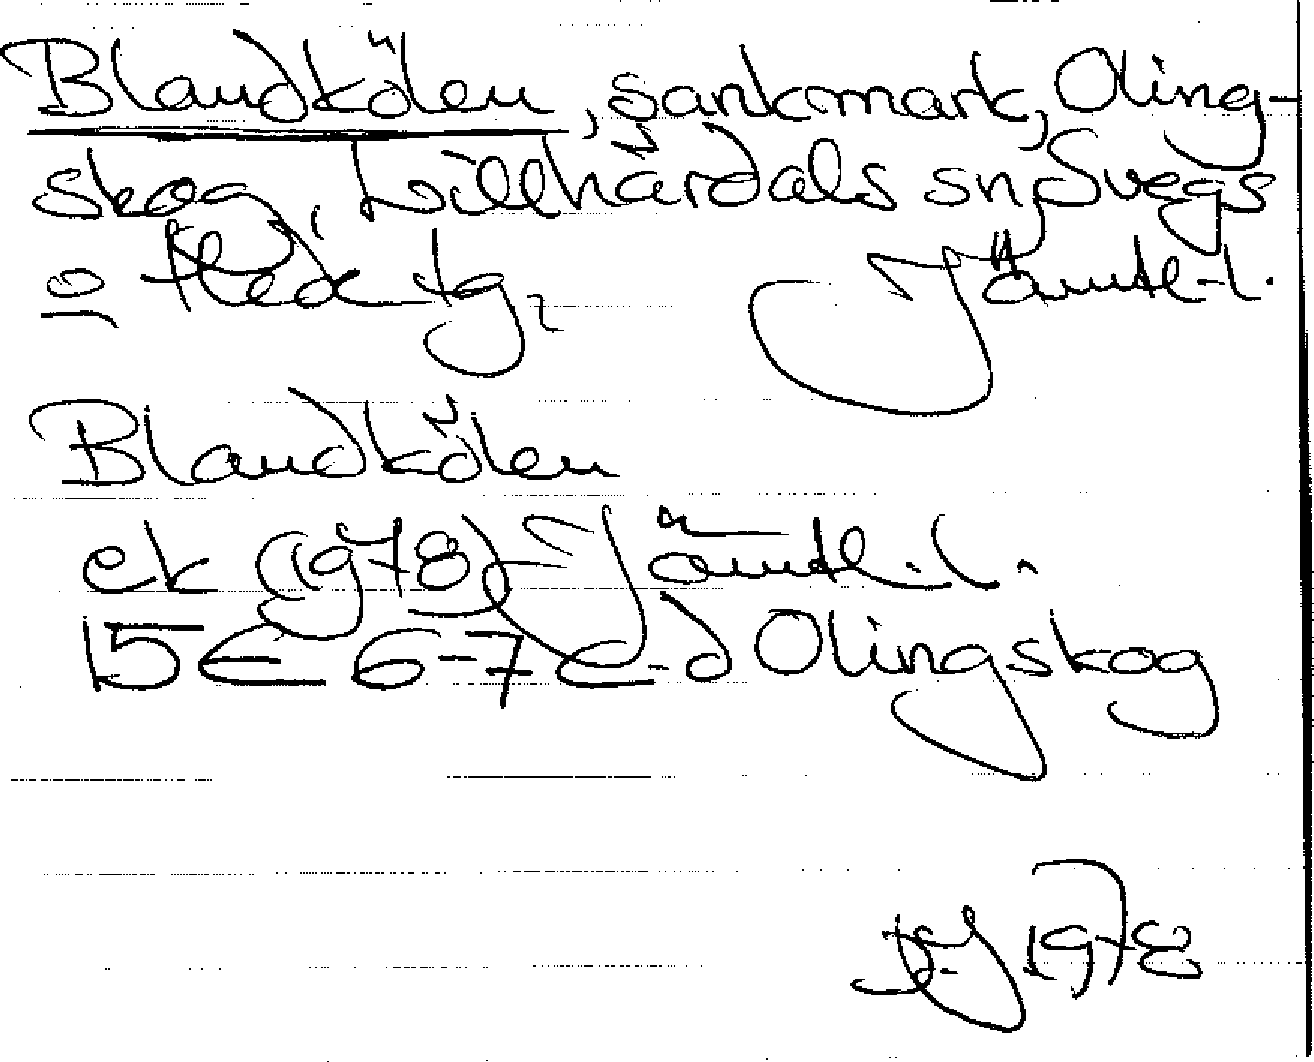 Blaudkölen, sankmark, Oling-
skog, Lillhärdals sn, Svegs
o Hede tg. Jämtl. l.
Blaudkölen
ek (1978) Jämtl. l.
15E 6-7 c-d Olingskog
1978